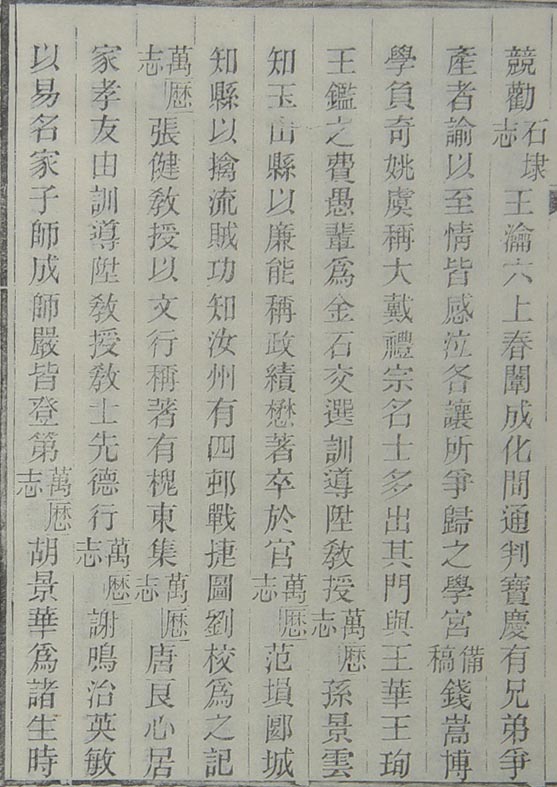 競勸石埭志王瀹六上春闈成化間通判寶慶有兄弟爭
產者諭以至情皆感泣各讓所爭歸之學宮備稿錢嵩博
學負奇姚虞稱大戴禮宗名士多出其門與王華王珣
王鑑之費愚輩爲金石交選訓導陞敎授萬歷志孫景雲
知玉山縣以廉能稱政績懋著卒於官萬歷志范塤郾城
知縣以擒流賊功知汝州有四邨戰捷圖劉校爲之記
萬歷志張健敎授以文行稱著有槐東集萬歷志唐良心居
家孝友由訓導陞敎授敎士先德行萬歷志謝鳴治英敏
以易名家子師成師嚴皆登第萬歷志胡景華爲諸生時